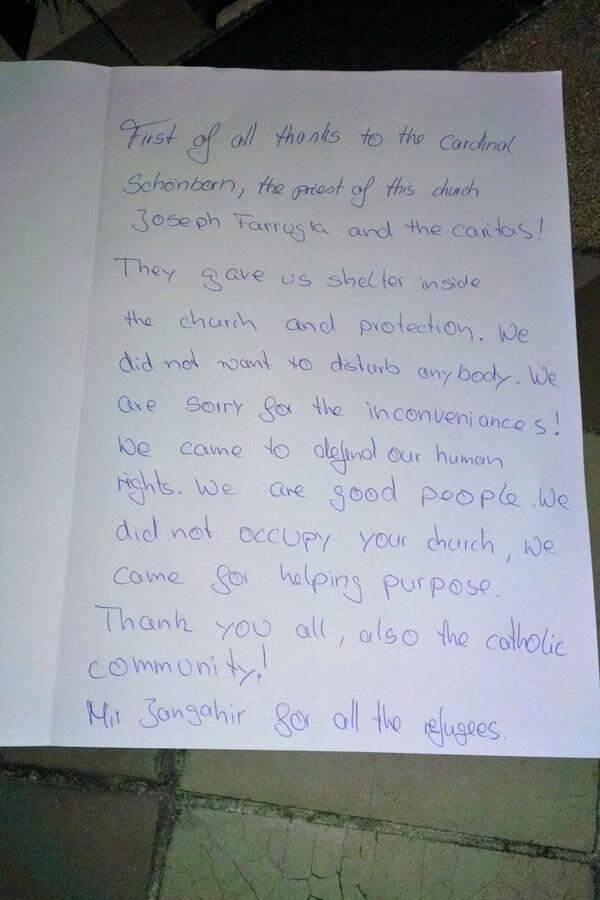 First of all thanks to the Cardinal
Schönborn, the priest of this church
Joseph Farrugia and the caritas!
They gave us shelter inside
the church and protection. We
did not want to disturb anybody. We
are sorry for the inconveniences!
We came to defend our human
rights. We are good people. We
did not occupy your church, we
came for helping purpose.
Thank you all, also the catholic
community!
Mir Jangahir for all the refugees.